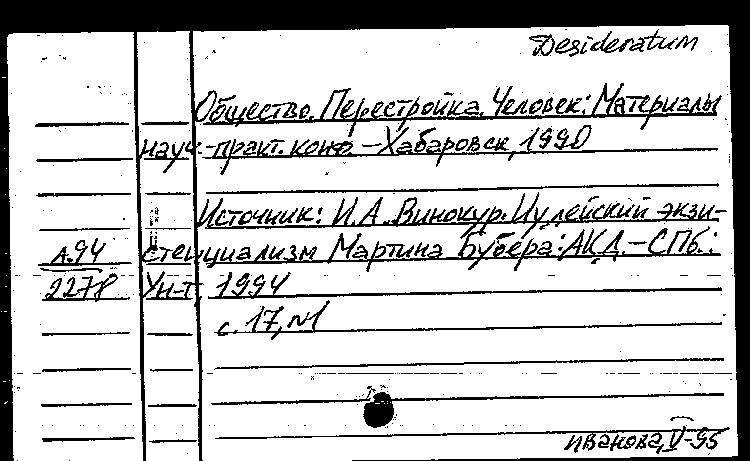 Desideratum
Общество. Перестройка. Человек: Материалы
науч.-практ. конф. – Хабаровск, 1990
Источник: И.А. Винокур. Иудейский экзи-
л.94 стенциализм Мартина Бубера: АКД. – СПб.:
2278 Ун-т, 1994
с. 17, №1
Иванова, V-95